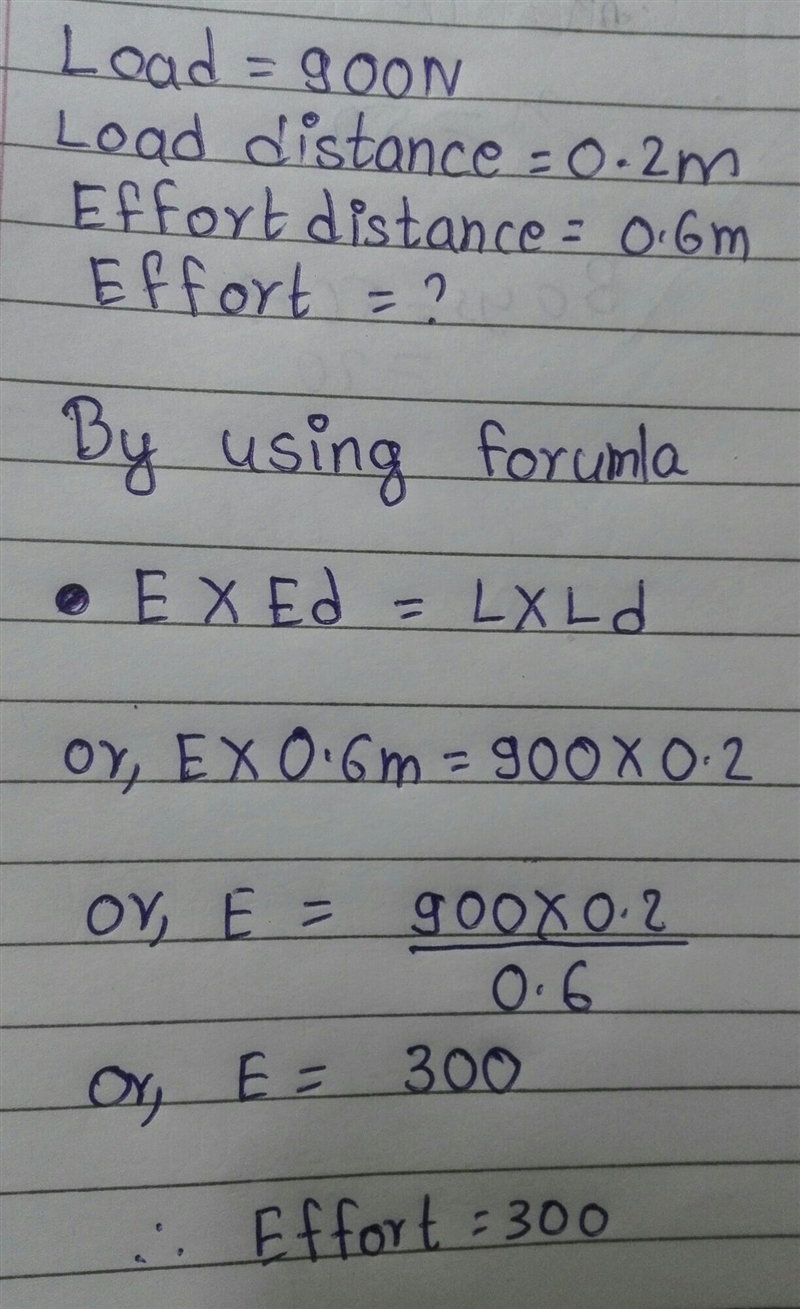 Load = 900N
Load distance = 0.2m
Effort distance = 0.6m
Effort = ?
By using forumla
• E X Ed = L X Ld
or, E X 0.6m = 900 X 0.2
or, E = 900 X 0.2
0.6
or, E = 300
∴ Effort = 300